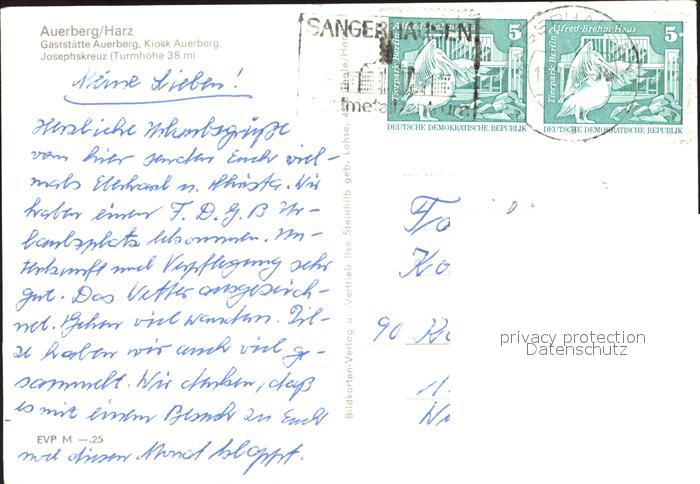 Auerberg/Harz
Gaststätte Auerberg, Kiosk Auerberg,
Josephskreuz (Turmhöhe 38 m)
Meine Lieben!
Herzliche Urlaubsgrüße
von hier senden Euch viel-
mals Eberhard u. Christa. Wir
haben einen F.D.G.B Ur-
laubsplatz bekommen. Un-
terkunft und Verpflegung sehr
gut. Das Wetter ausgezeich-
net. Gehen viel wandern. Pil-
ze haben wir auch viel ge-
sammelt. Wir denken, daß
es mit einem Besuch zu Euch
noch diesen Monat klappt.
EVP M —.25
Bildkarten-Verlag u. Vertrieb Ilse Steinhilb geb. Lohse,
SANGERHAUSEN
Alfred-Brehm-Haus
5
Tierpark Berlin
DEUTSCHE DEMOKRATISCHE REPUBLIK
Alfred-Brehm-Haus
5
Tierpark Berlin
DEUTSCHE DEMOKRATISCHE REPUBLIK
90
privacy protection
Datenschutz